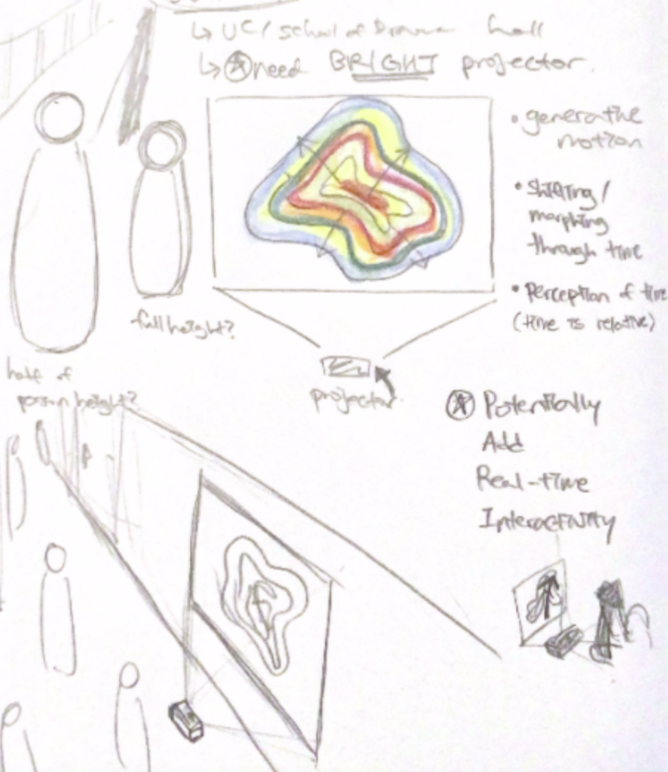 ↳ UC / school of Drama hall
↳ ⊛ need BRIGHT projector.
• generative
motion
• Shifting/
morphing
through time
• Perception of time
(time is relative)
full height?
half of
person height?
projector
⊛ Potentially
Add
Real-time
Interactivity